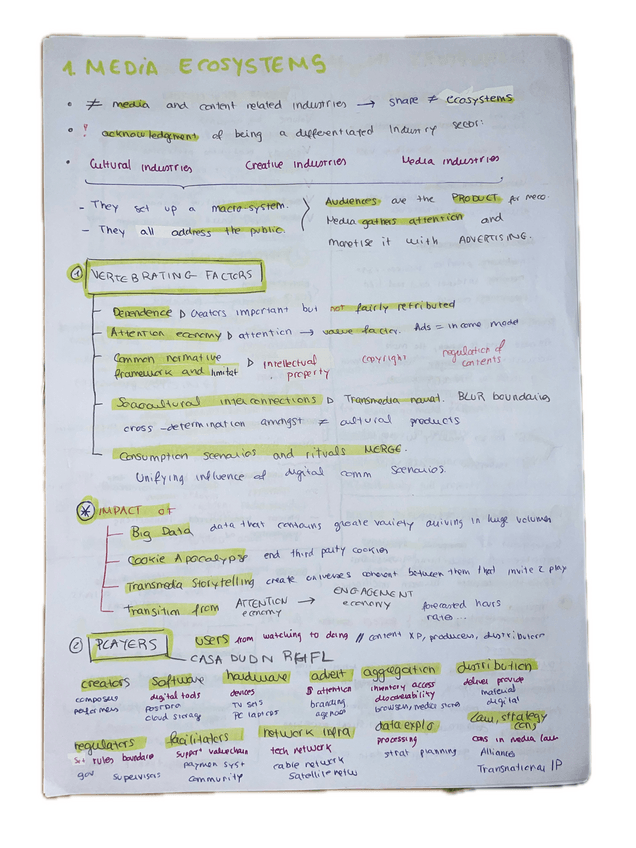 1. MEDIA ECOSYSTEMS
• ≠ media and content related industries → share ≠ ecosystems
• ! acknowledgment of being a differentiated Industry sector
• Cultural industries Creative industries Media industries
- They set up a macro-system.
- They all address the public.
Audiences are the PRODUCT for
Media gathers attention and
monetise it with ADVERTISING.
① VERTEBRATING FACTORS
Dependence ▷ Creators important but not fairly retributed
Attention economy ▷ attention → value factor. Ads = income model
Common normative framework and limitat ▷ Intellectual property copyright regulation of contents
Sociocultural interconnections ▷ Transmedia narrat. BLUR boundaries
cross-determination amongst ≠ cultural products
Consumption scenarios and rituals MERGE.
Unifying influence of digital comm scenarios.
* IMPACT OF
Big Data data that contains greate variety arriving in huge volumes
Cookie Apocalypse end third party cookies
Transmedia Storytelling create universes coherent between them that invite 2 play
Transition from ATTENTION economy → ENGAGEMENT economy forecasted hours rates...
② PLAYERS users from watching to doing // content XP, producers, distributors
CASA DUDN REFFL
creators software hardware advert aggregation distribution
composers performers
digital tools
cloud storage
devices
TV sets
PC laptops
$ attention
branding
agencies
inventory access
discoverability
browsers, media stores
deliver provide
material
digital
regulators facilitators network infra data explo law, strategy cons
set rules boundare
gov supervisors
support valuechain
paymen syst
community
tech network
cable network
Satellite netw
processing
strat planning
cons in media law
Alliances
Transnational IP